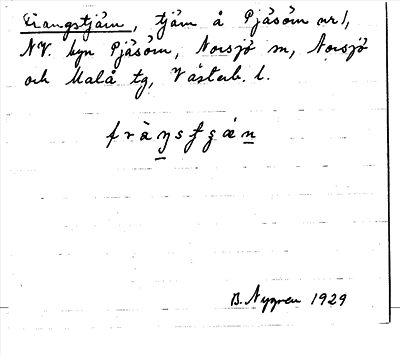 Frangstjärn, tjärn å Pjäsörn nr 1,
NV. byn Pjäsörn, Norsjö sn, Norsjö
och Malå tg, Västerb. l.
B. Nygren 1929